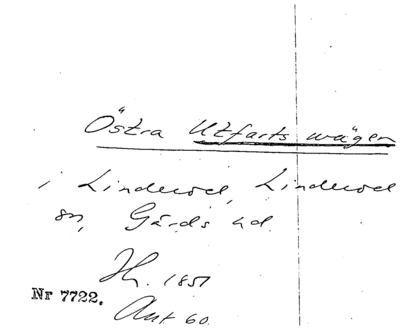 Östra Utfarts wägen
i Linderöd, Linderöd
sn, Gärds hd.
Hh. 1851
Nr 7722.
Ant 60.